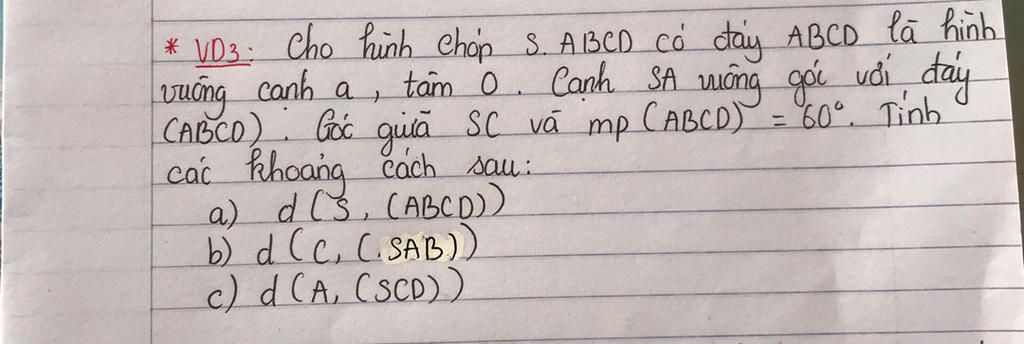 * VD3: Cho hình chóp S.ABCD có đáy ABCD là hình
vuông cạnh a, tâm O. Cạnh SA vuông góc với đáy
(ABCD). Góc giữa SC và mp (ABCD) = 60°. Tính
các khoảng cách sau:
a) d(S, (ABCD))
b) d(C, (SAB))
c) d(A, (SCD))